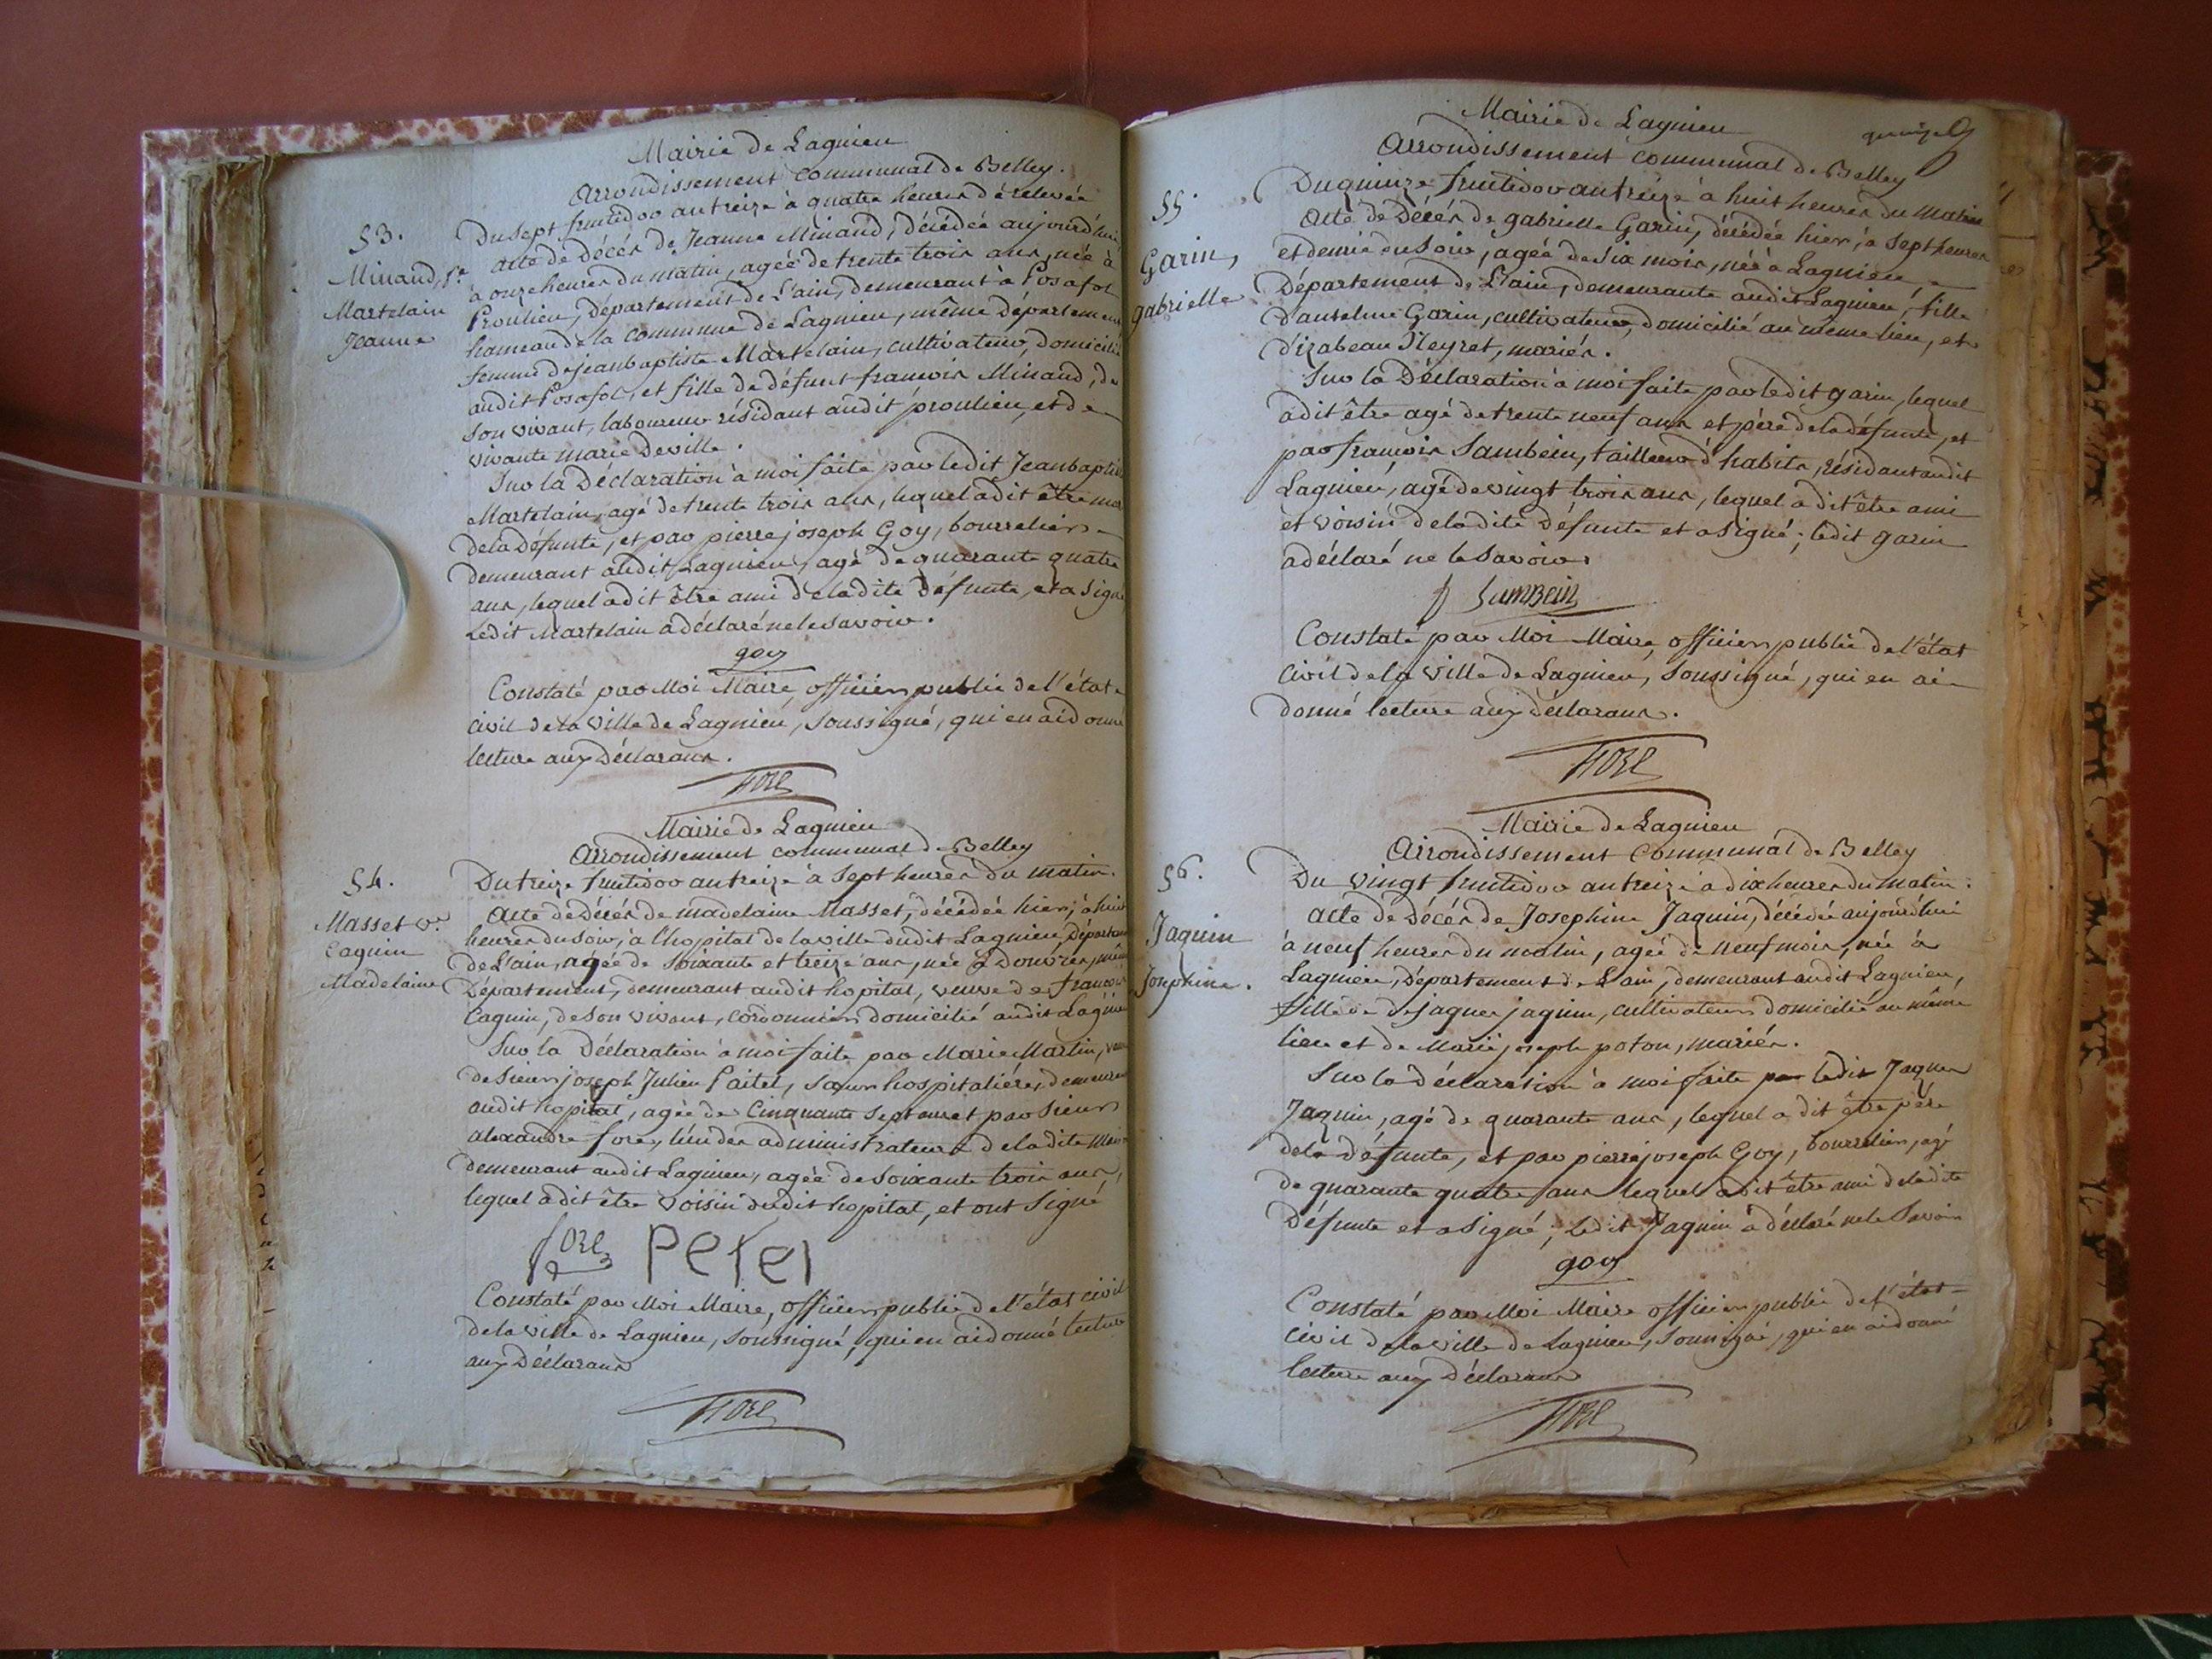 Mairie de Lagnieu
Arrondissement communal de Belley.
53.
Minaud, fe
Martelain
Jeanne
Du sept fructidor an treize à quatre heures de relevée
acte de décès de Jeanne Minaud, décédée aujourd'hui
à onze heures du matin, agée de trente trois ans, née à
Proulieu, Département de L'ain, demeurant à Posafol
hameau de la commune de Lagnieu, même département
femme de jean baptiste Martelain, cultivateur, domicilié
audit Posafol, et fille de défunt francois Minaud, de
son vivant, laboureur résidant audit proulieu, et de
vivante marie Deville.
Sur la Déclaration à moi faite par ledit Jean baptiste
Martelain, agé de trente trois ans, lequel a dit être mari
de la défunte, et par pierre joseph Goy, bourrelier
demeurant audit Lagnieu, agé de quarante quatre
ans, lequel a dit être ami de la dite défunte, et a signé
Ledit Martelain a déclaré ne le savoir.
goy
Constaté par Moi Maire, officier public de l'état
civil de la ville de Lagnieu, soussigné, qui en ai donné
lecture aux Déclarans.
fore
Mairie de Lagnieu
Arrondissement communal de Belley
54.
Masset ve
Caguin
Madelaine
Du treize fructidor an treize à sept heures du matin.
Acte de Décès de madelaine Masset, décédée hier, à huit
heures du soir, à l'hopital de la ville dudit Lagnieu, Départem
de L'ain, agée de soixante et treize ans, née à Douvres, même
Département, demeurant audit hopital, veuve de francois
Caguin, de son vivant, cordonnier domicilié audit Lagnieu
Sur la Déclaration à moi faite par Marie Martin, veuve
de sieur joseph Julien Paitel, sœur hospitalière, demeurant
audit hopital, agée de Cinquante sept ans et par sieur
alexandre fore, l'un des administrateurs de la dite
demeurant audit Lagnieu, agée de soixante trois ans,
lequel a dit être voisin dudit hopital, et ont signé
fore Petel
Constaté par Moi Maire, officier public de l'état civil
de la ville de Lagnieu, soussigné, qui en ai donné lecture
aux Déclarans
fore
Mairie de Lagnieu
Arrondissement communal de Belley
55.
Garin,
gabrielle
Du quinze fructidor an treize à huit heures du matin
Acte de Décès de gabrielle Garin, décédée hier, à sept heures
et demie du soir, agée de six mois, née à Lagnieu
Département de L'ain, demeurante audit Lagnieu, fille
d'anselme Garin, cultivateur, domicilié au même lieu, et
d'izabeau Pleyret, mariés.
Sur la Déclaration à moi faite par ledit garin, lequel
a dit être agé de trente neuf ans et père de la défunte, et
par francois Sambein, tailleur d'habits, résidant audit
Lagnieu, agé de vingt trois ans, lequel a dit être ami
et voisin de la dite défunte et a signé; ledit garin
a déclaré ne le savoir.
f Sambein
Constaté par Moi Maire, officier public de l'état
civil de la ville de Lagnieu, soussigné, qui en ai
donné lecture aux déclarans.
fore
Mairie de Lagnieu
Arrondissement Communal de Belley
56.
Jaquin
Josephine.
Du vingt fructidor an treize à dix heures du matin.
acte de Décès de Josephine Jaquin, décédée aujourd'hui
à neuf heures du matin, agée de neuf mois, née à
Lagnieu, Département de L'ain, demeurant audit Lagnieu,
fille de jaques jaquin, cultivateur domicilié au même
lieu et de Marie joseph poton, mariés.
Sur la déclaration à moi faite par ledit Jaques
Jaquin, agé de quarante ans, lequel a dit être père
de la défunte, et par pierre joseph Goy, bourrelier, agé
de quarante quatre ans lequel a dit être ami de la dite
Défunte et a signé; Ledit Jaquin a déclaré ne le savoir
goy
Constaté par Moi Maire officier public de l'état
civil de la ville de Lagnieu, soussigné, qui en ai donné
lecture aux Déclarans
fore